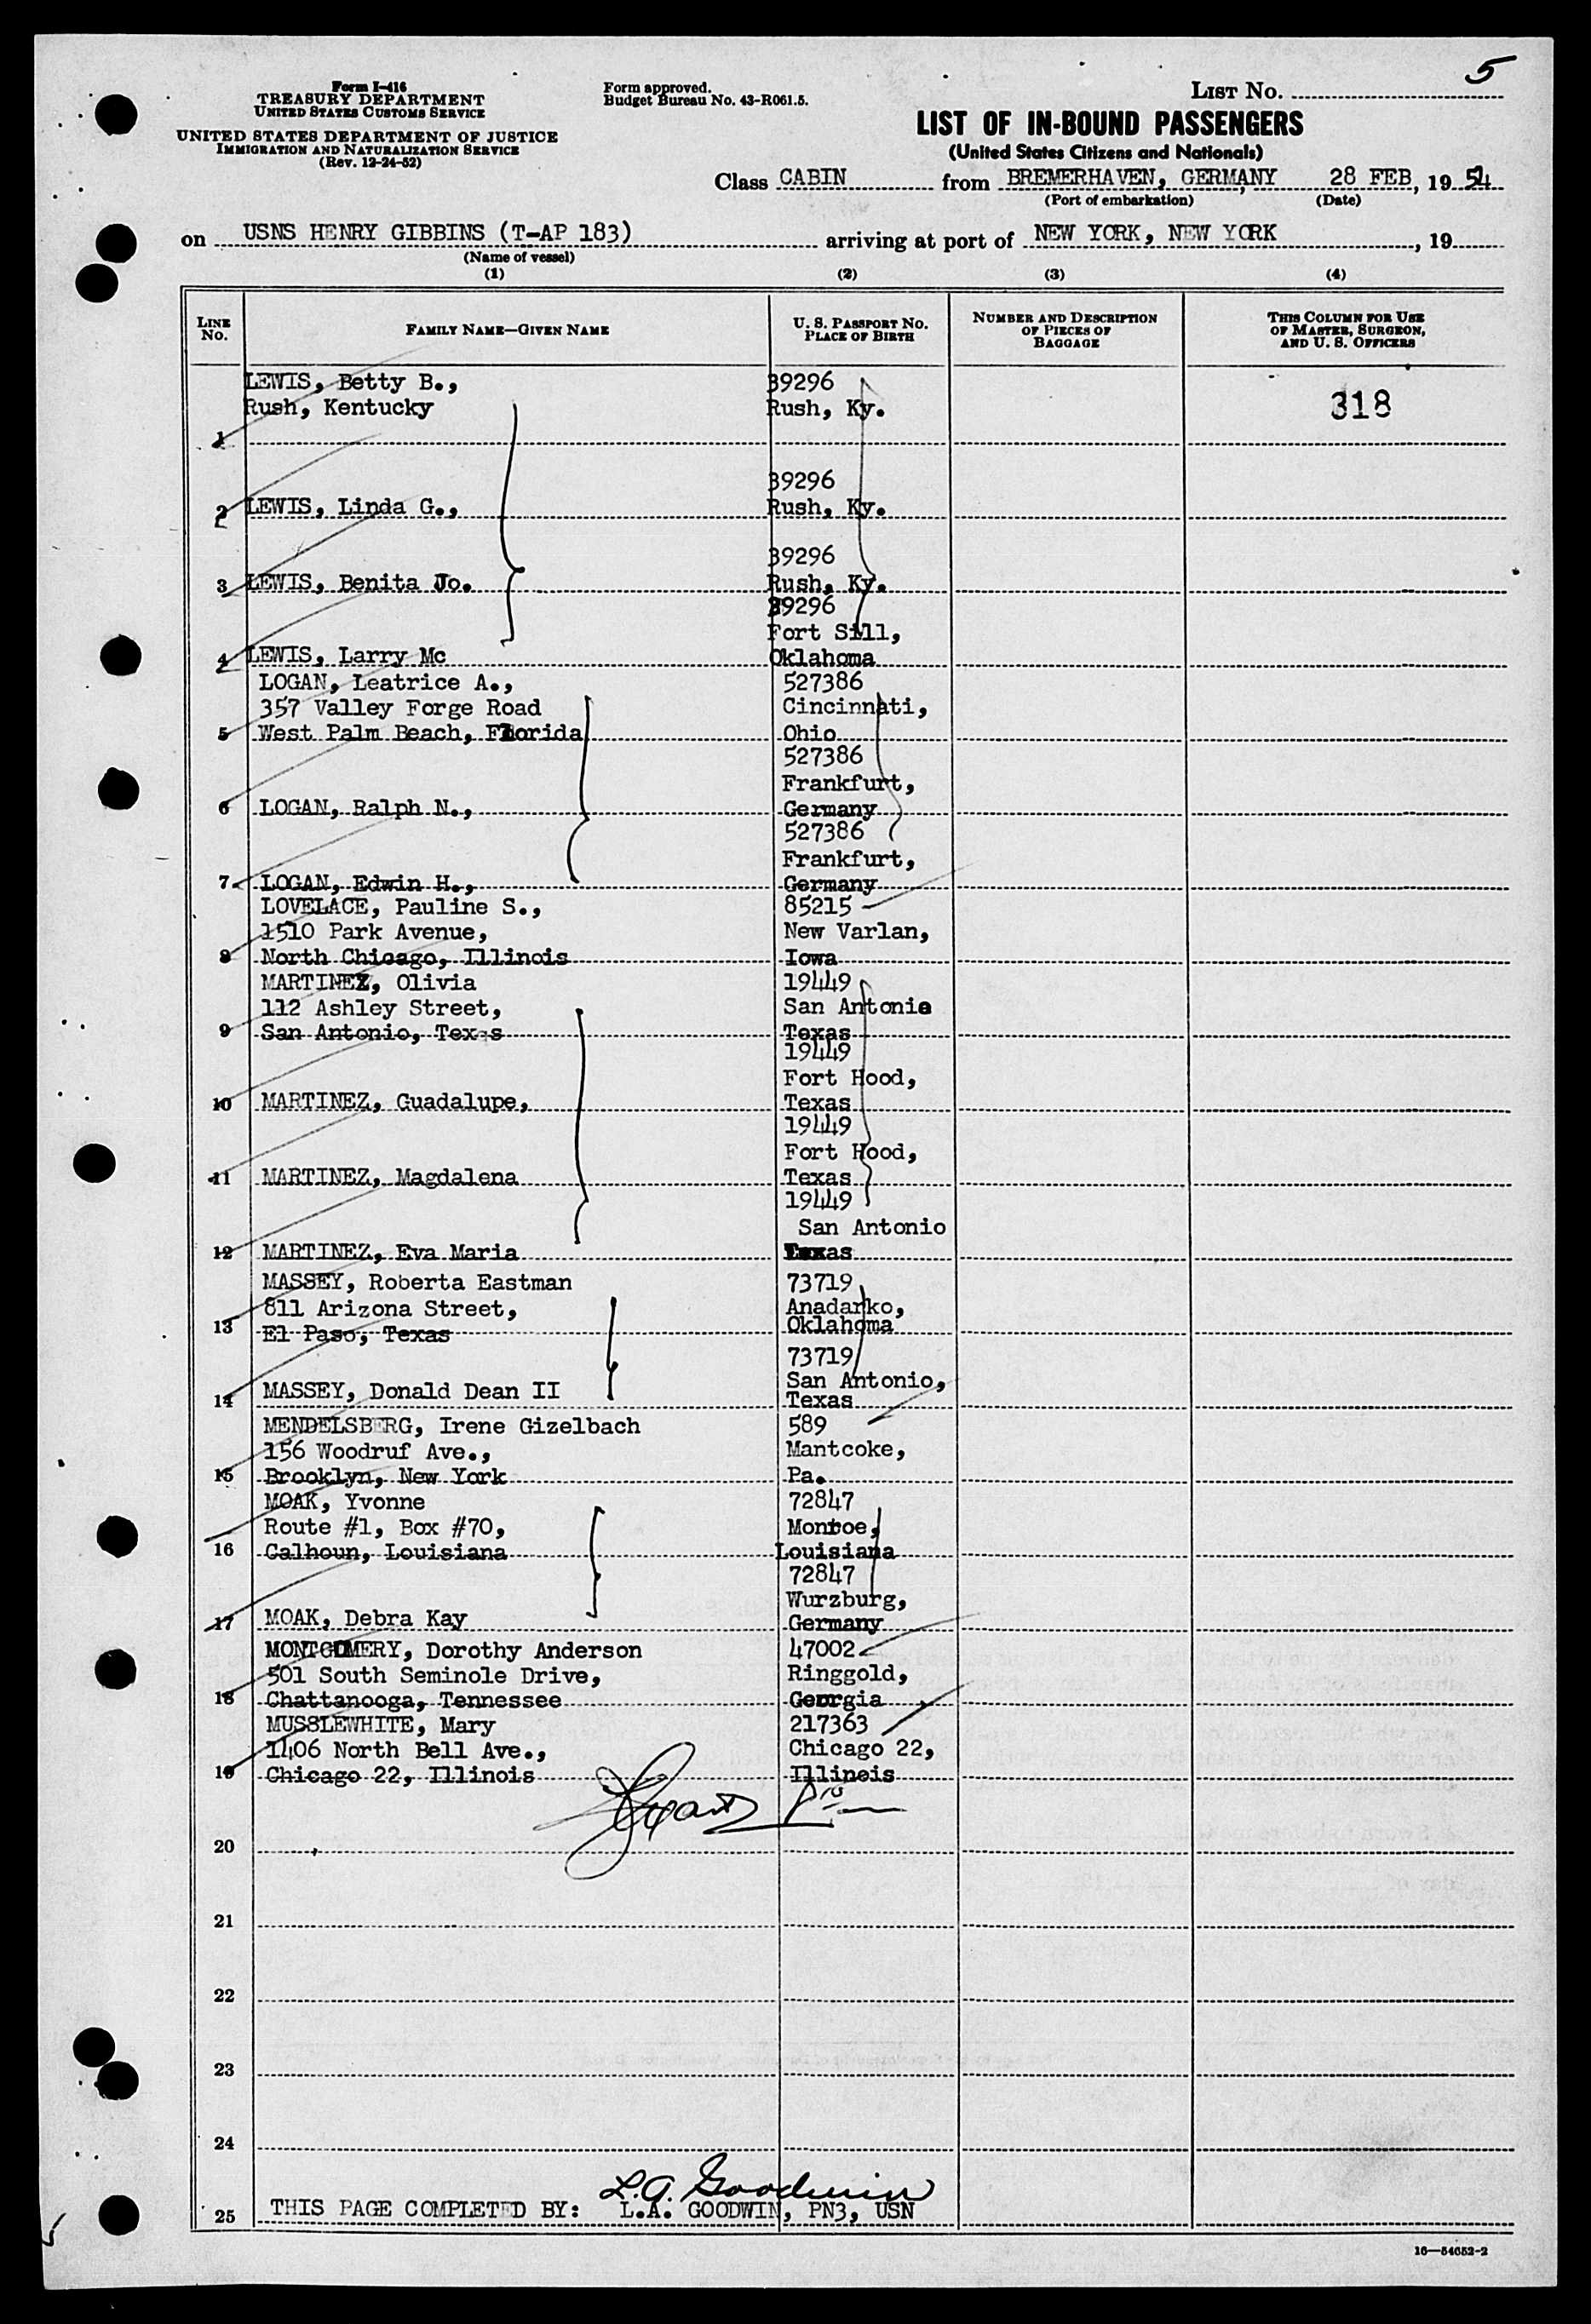 5
Form I-416
TREASURY DEPARTMENT
UNITED STATES CUSTOMS SERVICE
UNITED STATES DEPARTMENT OF JUSTICE
IMMIGRATION AND NATURALIZATION SERVICE
(Rev. 12-24-52)
Form approved.
Budget Bureau No. 43-R061.5.
LIST NO.
LIST OF IN-BOUND PASSENGERS
(United States Citizens and Nationals)
Class CABIN from BREMERHAVEN, GERMANY 28 FEB, 19 54
(Port of embarkation) (Date)
on USNS HENRY GIBBINS (T-AP 183) arriving at port of NEW YORK, NEW YORK, 19
(Name of vessel)
(1) (2) (3) (4)
LINE NO. FAMILY NAME—GIVEN NAME U. S. PASSPORT NO. PLACE OF BIRTH NUMBER AND DESCRIPTION OF PIECES OF BAGGAGE THIS COLUMN FOR USE OF MASTER, SURGEON, AND U. S. OFFICERS
LEWIS, Betty B., 39296
Rush, Kentucky Rush, Ky. 318
1
39296
2 LEWIS, Linda G., Rush, Ky.
39296
3 LEWIS, Benita Jo. Rush, Ky.
39296
Fort Sill,
4 LEWIS, Larry Mc Oklahoma
LOGAN, Leatrice A., 527386
357 Valley Forge Road Cincinnati,
5 West Palm Beach, Florida Ohio
527386
Frankfurt,
6 LOGAN, Ralph N., Germany
527386
Frankfurt,
7 LOGAN, Edwin H., Germany
LOVELACE, Pauline S., 85215
1510 Park Avenue, New Varlan,
8 North Chicago, Illinois Iowa
MARTINEZ, Olivia 19449
112 Ashley Street, San Antonio
9 San Antonio, Texas Texas
19449
Fort Hood,
10 MARTINEZ, Guadalupe, Texas
19449
Fort Hood,
11 MARTINEZ, Magdalena Texas
19449
San Antonio
12 MARTINEZ, Eva Maria Texas
MASSEY, Roberta Eastman 73719
811 Arizona Street, Anadarko,
13 El Paso, Texas Oklahoma
73719
San Antonio,
14 MASSEY, Donald Dean II Texas
MENDELSBERG, Irene Gizelbach 589
156 Woodruf Ave., Mantcoke,
15 Brooklyn, New York Pa.
MOAK, Yvonne 72847
Route #1, Box #70, Monroe,
16 Calhoun, Louisiana Louisiana
72847
Wurzburg,
17 MOAK, Debra Kay Germany
MONTGOMERY, Dorothy Anderson 47002
501 South Seminole Drive, Ringgold,
18 Chattanooga, Tennessee Georgia
MUSSLEWHITE, Mary 217363
1406 North Bell Ave., Chicago 22,
19 Chicago 22, Illinois Illinois
20
21
22
23
24
L.A. Goodwin
25 THIS PAGE COMPLETED BY: L.A. GOODWIN, PN3, USN
16—54652-2